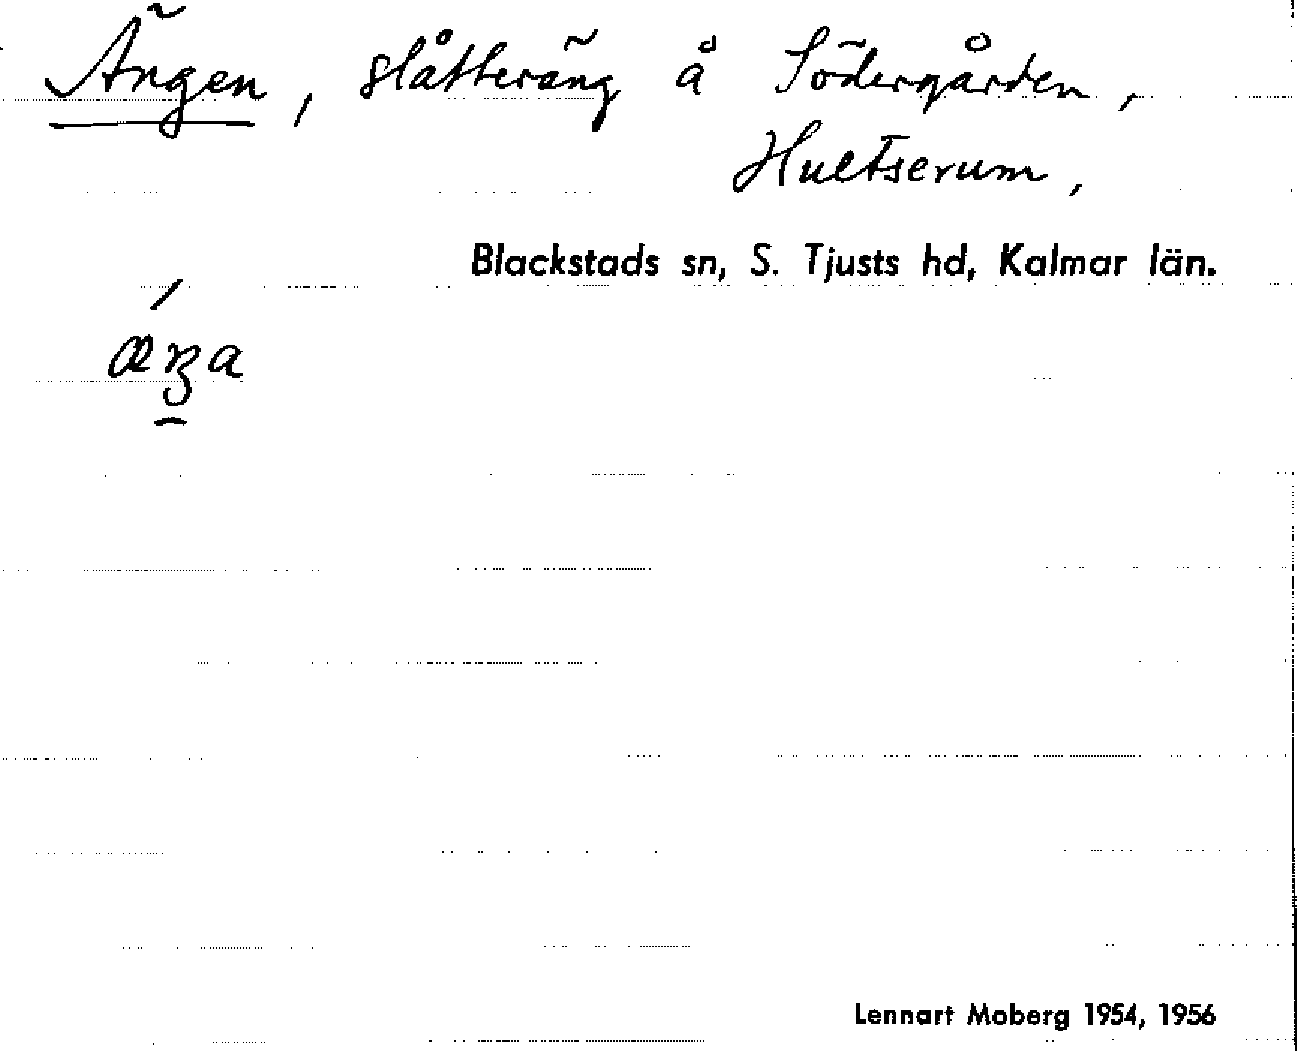 Ängen, slåtteräng å Södergården,
Hultserum,
Blackstads sn, S. Tjusts hd, Kalmar län.
Lennart Moberg 1954, 1956